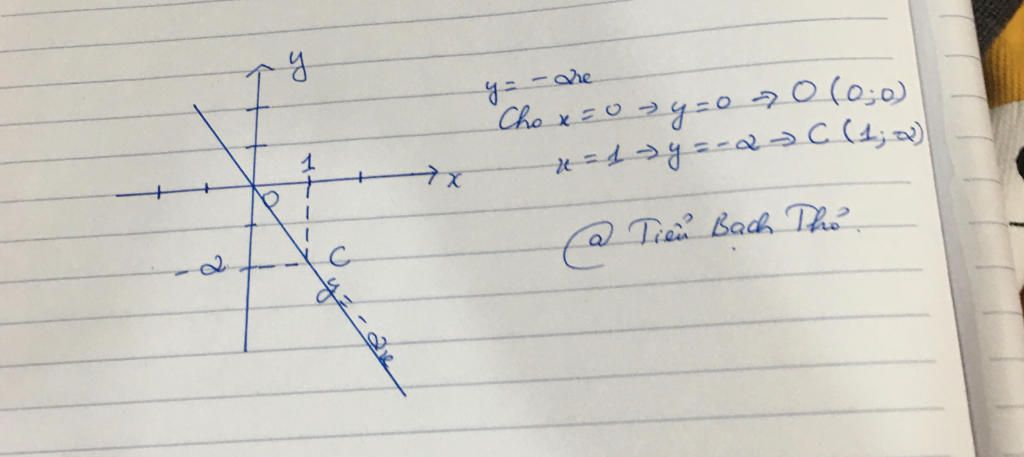 y
y = -2x
Cho x = 0 → y = 0 ⇒ O (0;0)
x = 1 → y = -2 → C (1;-2)
1
x
O
@ Tiểu Bạch Thỏ.
-2
C
y = -2x